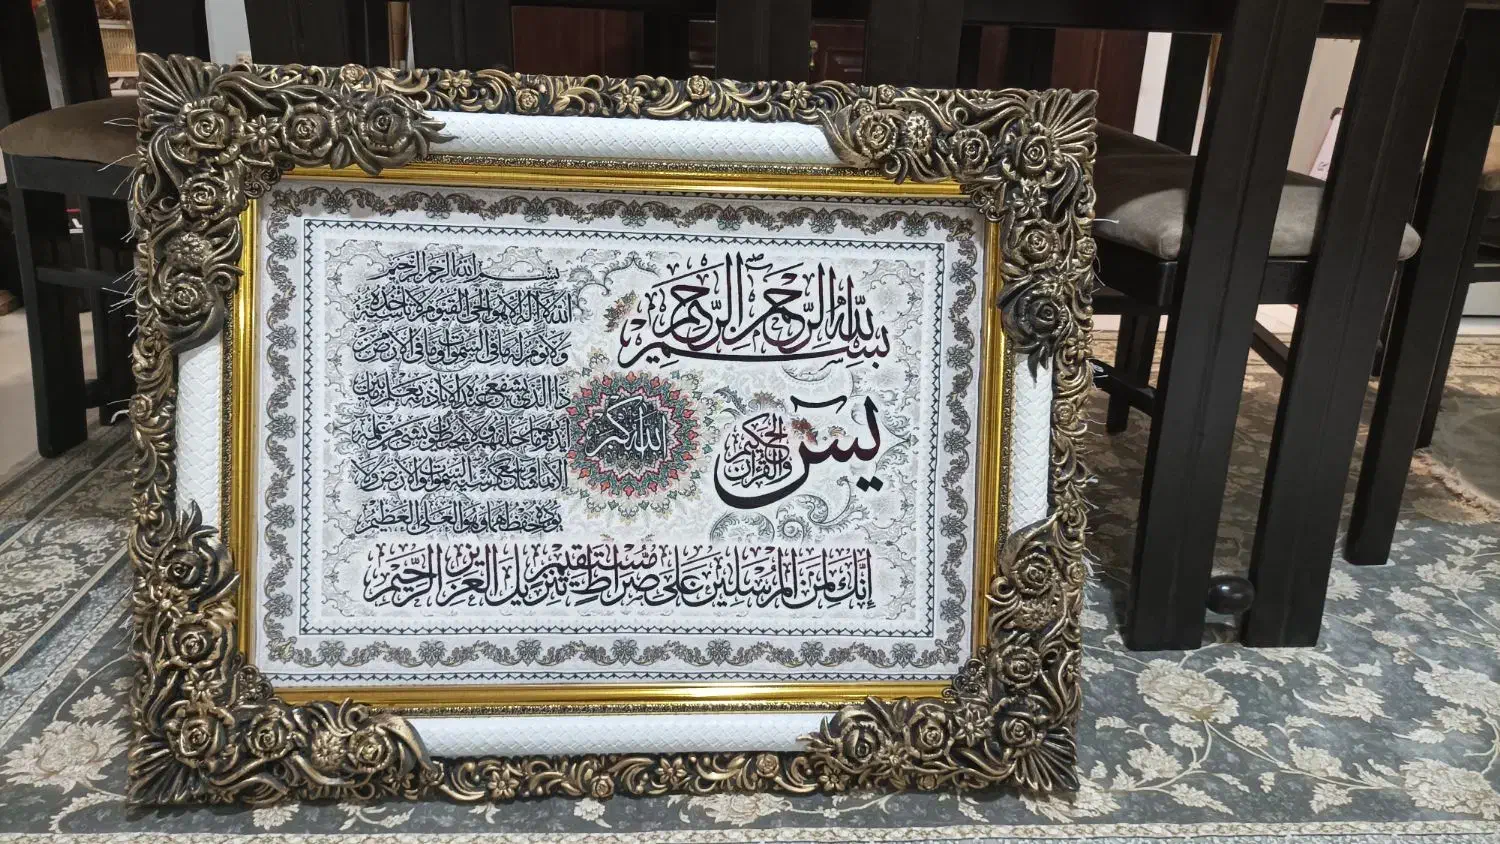 بِسْمِ اللهِ الرَّحْمٰنِ الرَّحِيْمِ
يسٓ
وَالقُرآنِ الحَكِيمِ
الله اكبر
بسم الله الرحمن الرحيم
الله لا اله الا هو الحي القيوم لا تأخذه سنة
ولا نوم له ما في السموات وما في الارض
من ذا الذي يشفع عنده الا باذنه يعلم ما بين
ايديهم وما خلفهم ولا يحيطون بشيء من علمه
الا بما شاء وسع كرسيه السموات والارض ولا
يؤده حفظهما وهو العلي العظيم
إِنَّكَ لَمِنَ المُرْسَلِيْنَ عَلَى صِرَاطٍ مُسْتَقِيْمٍ تَنْزِيْلَ العَزِيْزِ الرَّحِيْمِ